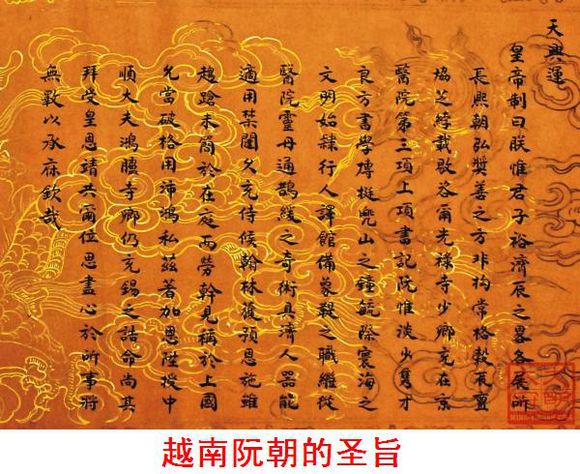 天興運
皇帝制曰朕惟君子裕濟辰之畧各展所
長熙朝弘奬善之方非拘常格爰
協芝綍載敭咨爾光祿寺少卿充在京
醫院第三項上項書記阮惟淡少才
良方書學博挺山之鐘毓際寰海之
文明始隸行人譯館備象鞮之職繼從
醫院靈毋通鵲緩之奇術具濟人器能
適用禁闥久充侍候翰林復預恩施雖
趨蹌未間於在庭而勞幹見稱於上國
允當破格用沛鴻私茲著加恩陞授中
順大夫鴻臚寺卿仍充錫之誥命尚其
拜受皇恩靖共爾位思盡心於所事將
無斁以承庥欽哉
越南阮朝的圣旨